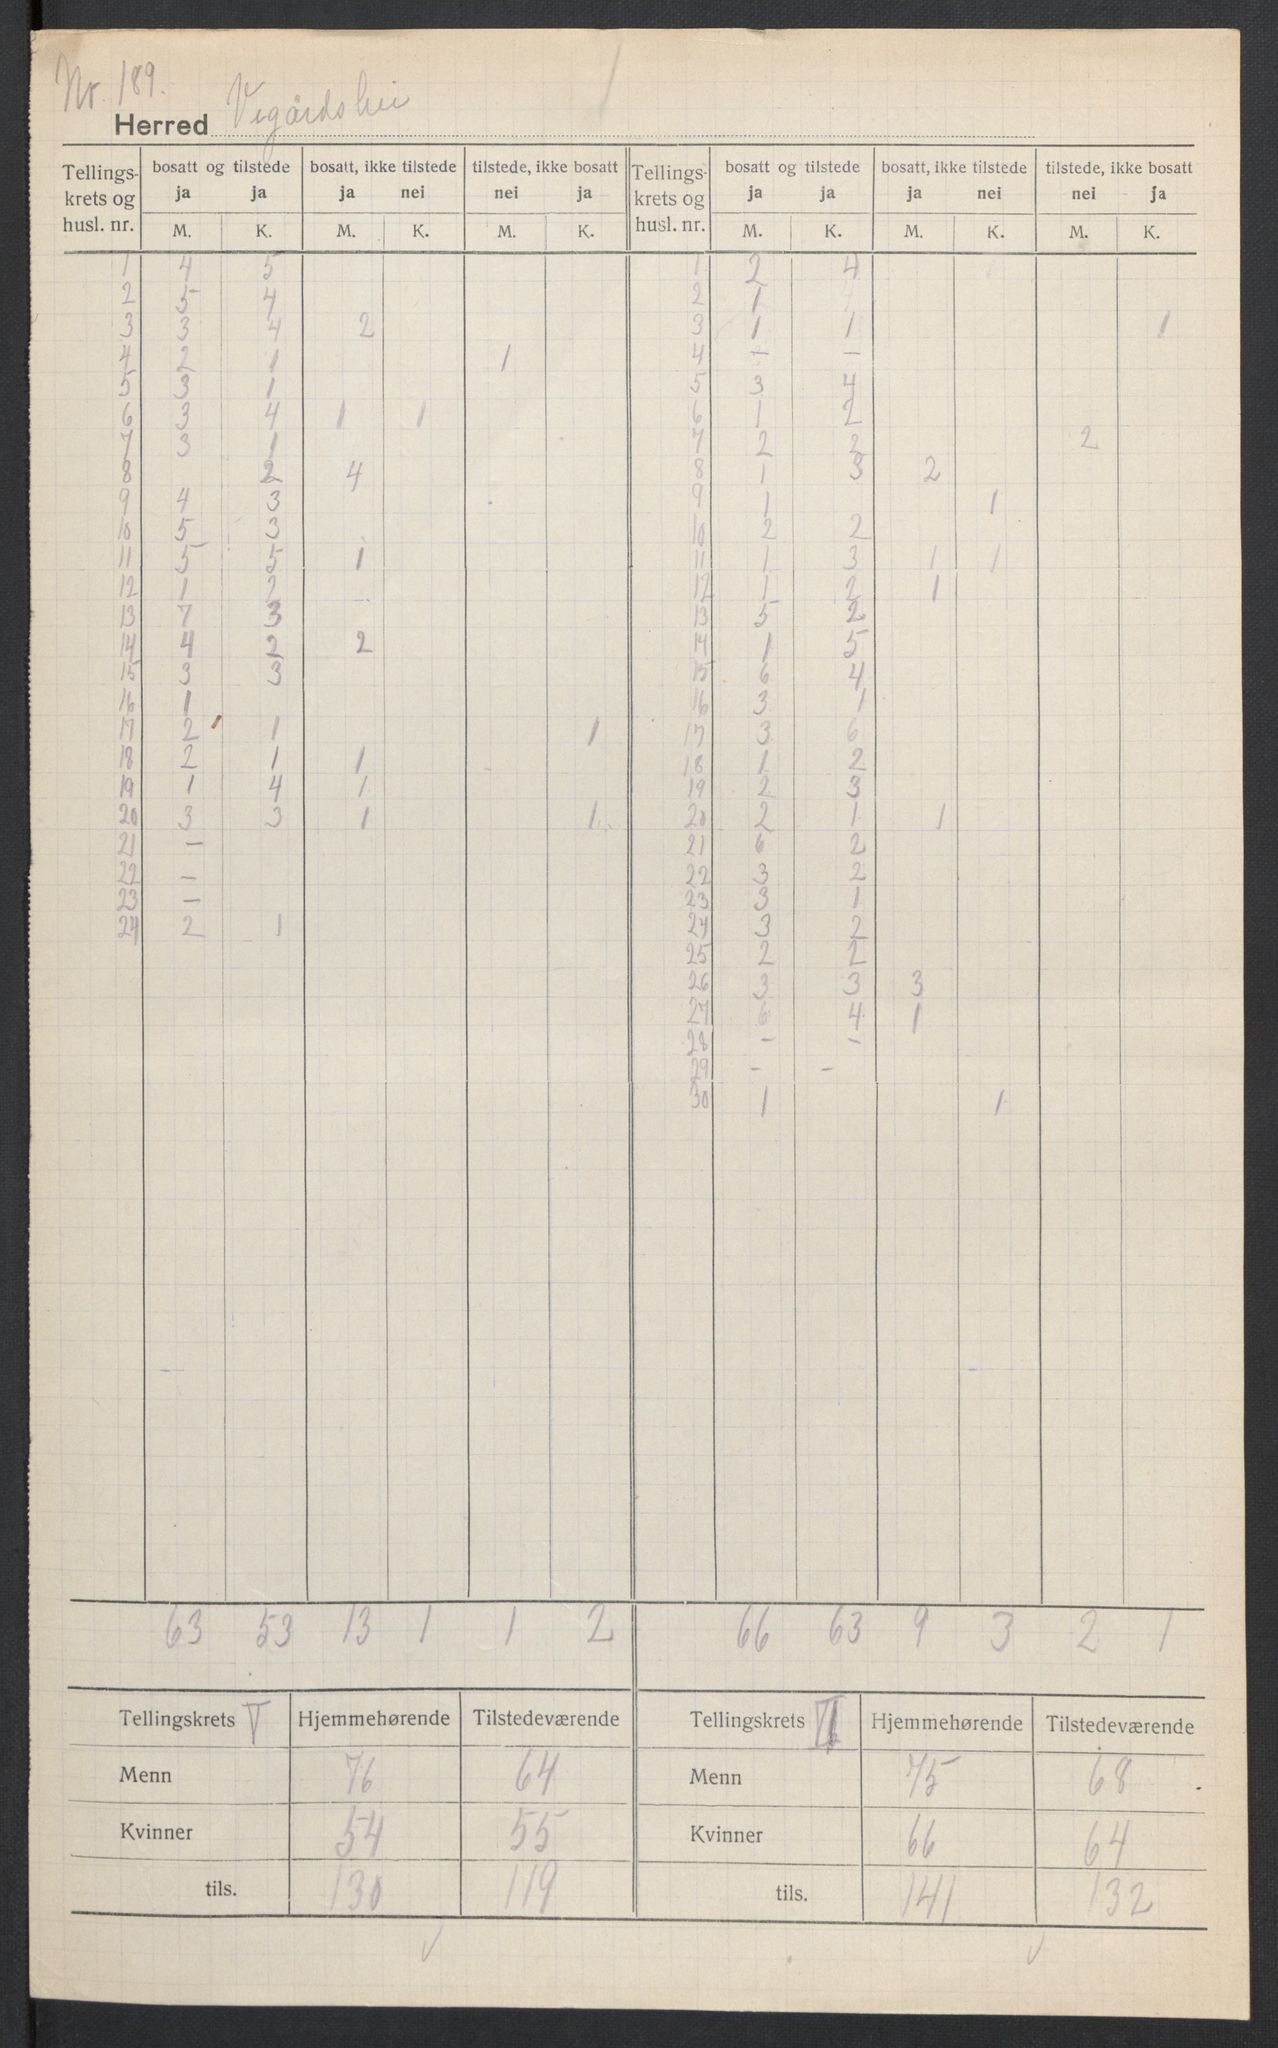 Nr. 189.
Herred Vegårdshei
Tellings-krets og husl. nr. | bosatt og tilstede ja ja | bosatt, ikke tilstede ja nei | tilstede, ikke bosatt nei ja | Tellings-krets og husl. nr. | bosatt og tilstede ja ja | bosatt, ikke tilstede ja nei | tilstede, ikke bosatt nei ja
M. K. M. K. M. K. M. K. M. K. M. K.
1 4 5 | 1 2 4
2 5 4 | 2 1
3 3 4 2 | 3 1 1 1
4 2 1 1 | 4 - -
5 3 1 | 5 3 4
6 3 4 1 1 | 6 1 2
7 3 1 | 7 2 2 2
8 2 4 | 8 1 3 2
9 4 3 | 9 1 1
10 5 3 | 10 2 2
11 5 5 1 | 11 1 3 1 1
12 1 2 | 12 1 2 1
13 7 3 | 13 5 2
14 4 2 2 | 14 1 5
15 3 3 | 15 6 4
16 1 | 16 3 1
17 2 1 1 | 17 3 6
18 2 1 1 | 18 1 2
19 1 4 1 | 19 2 3
20 3 3 1 1 | 20 2 1 1
21 - | 21 6 2
22 - | 22 3 2
23 - | 23 3 1
24 2 1 | 24 3 2
25 2 2
26 3 3 3
27 6 4 1
28 - -
29 - -
30 1 1
63 53 13 1 1 2 | 66 63 9 3 2 1
Tellingskrets V | Hjemmehørende | Tilstedeværende | Tellingskrets VI | Hjemmehørende | Tilstedeværende
Menn 76 64 | Menn 75 68
Kvinner 54 55 | Kvinner 66 64
tils. 130 119 | tils. 141 132